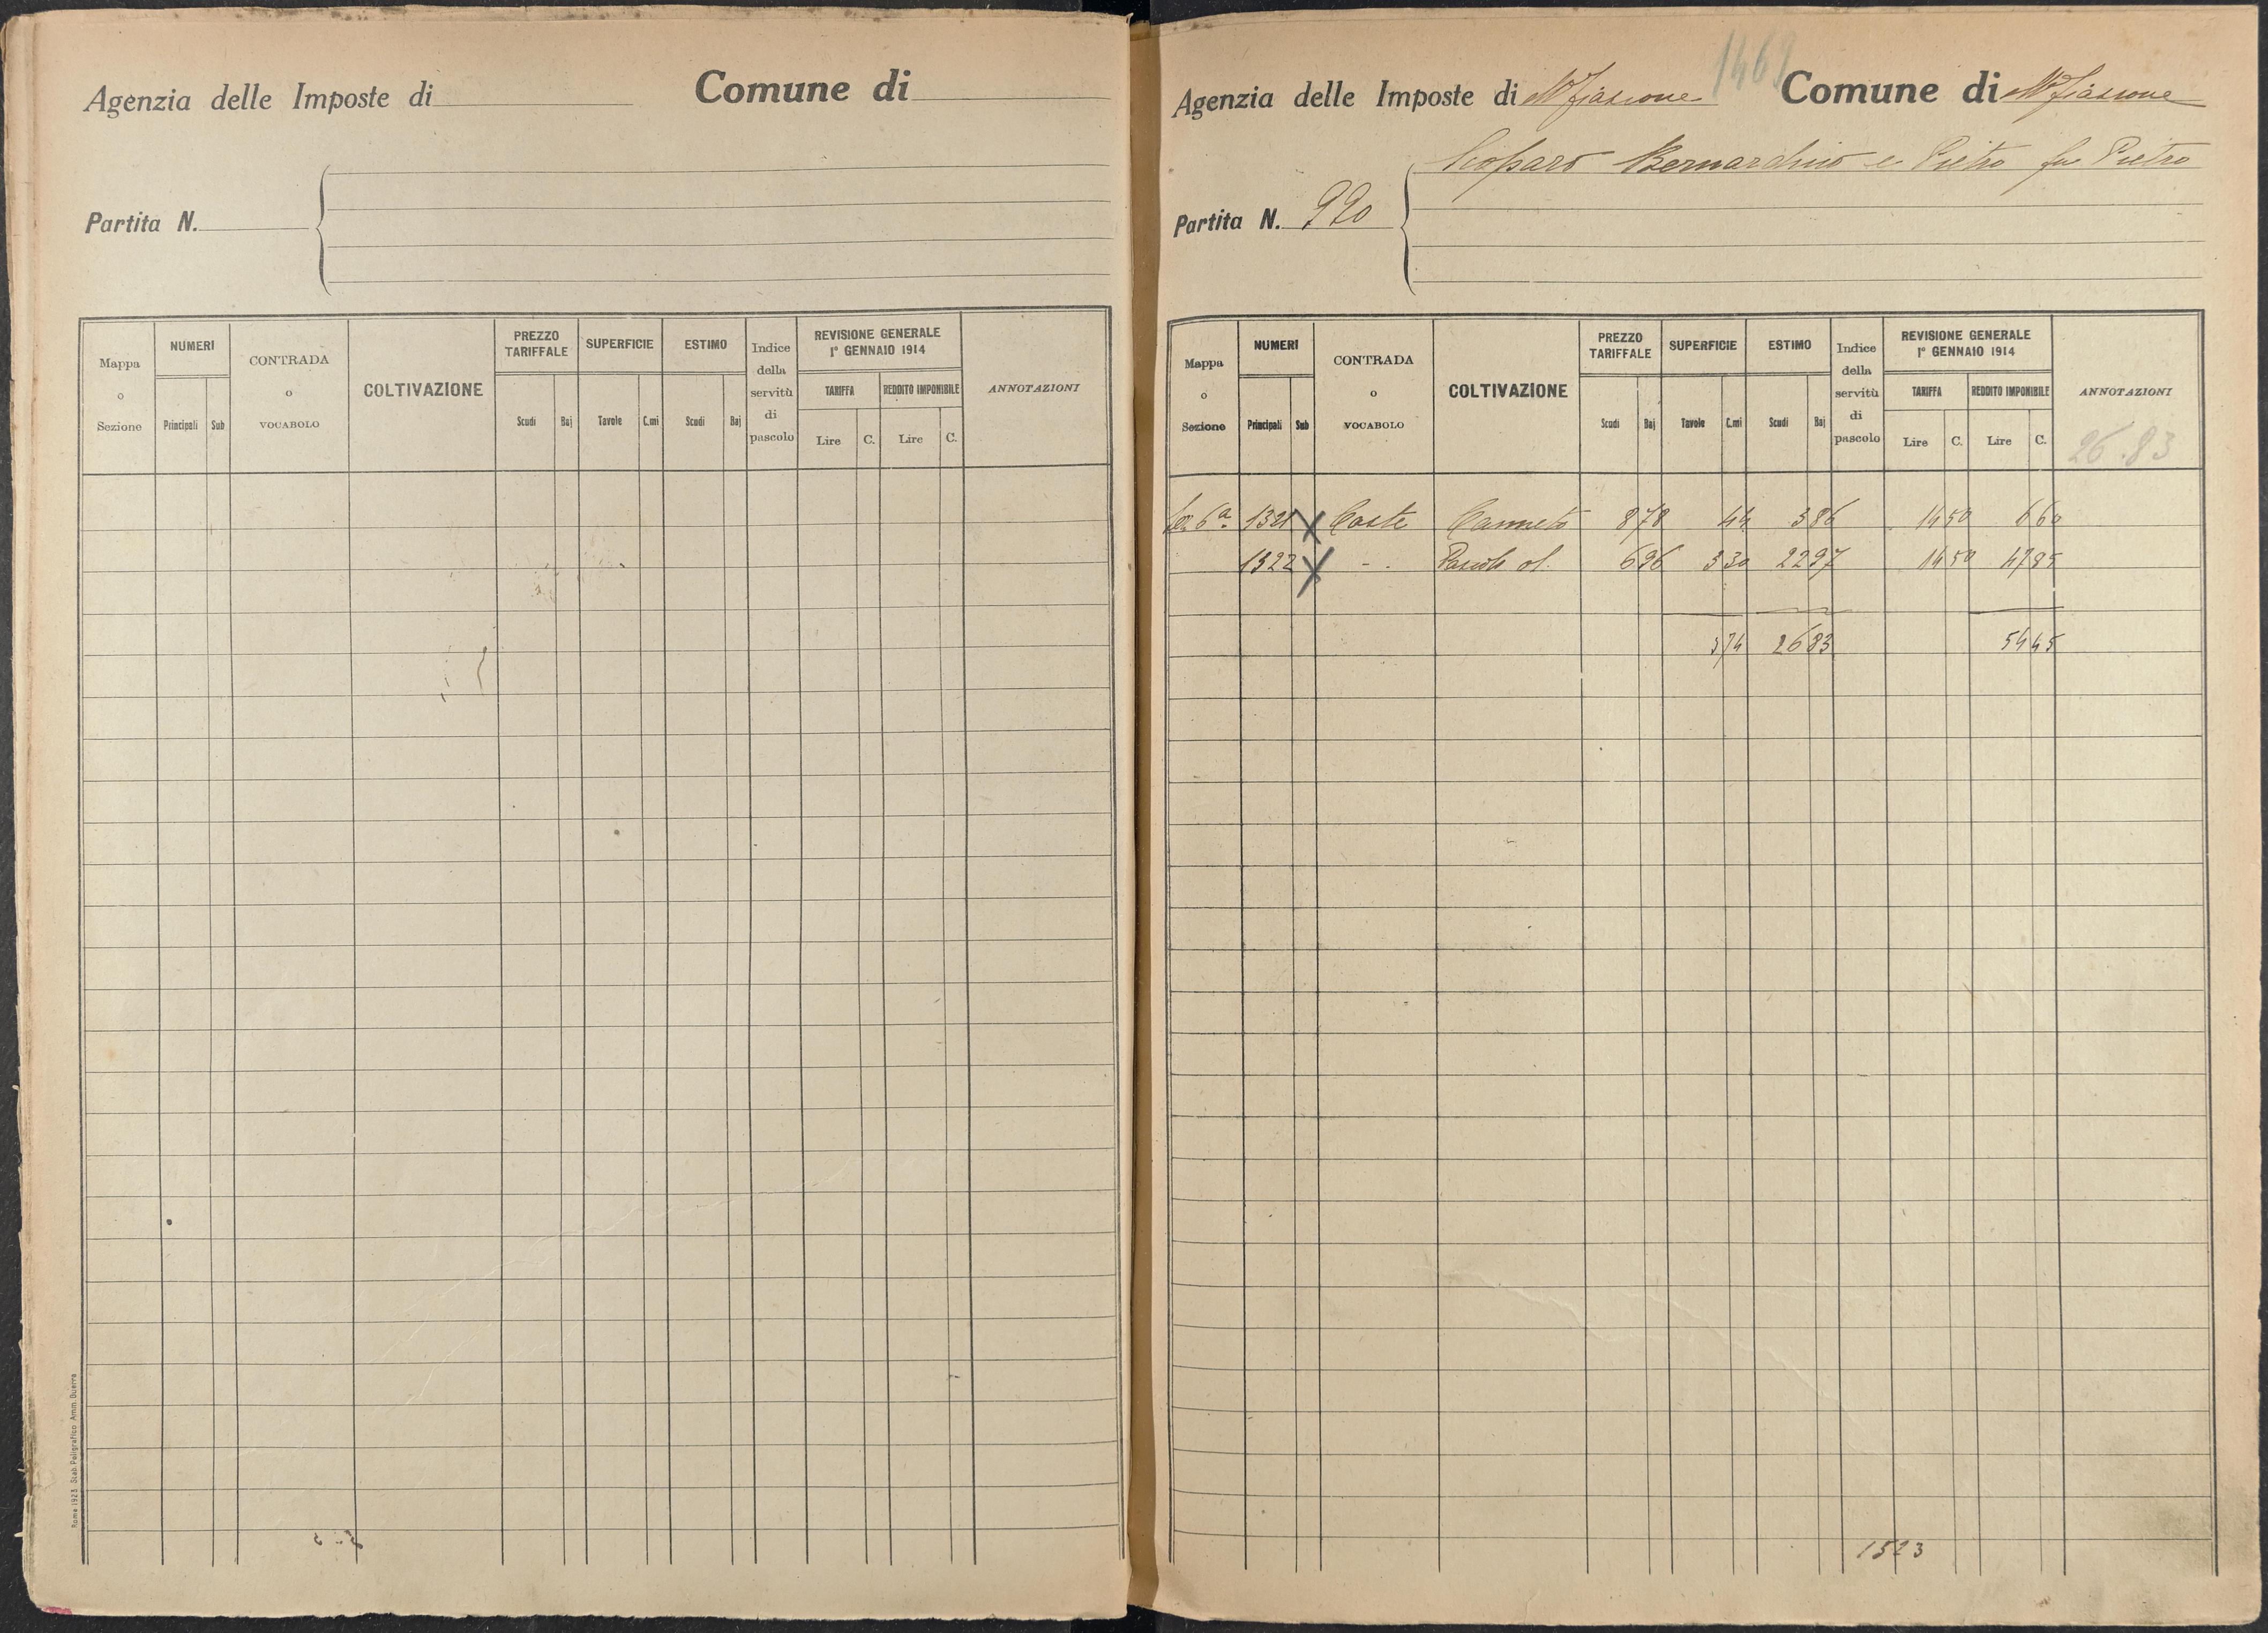 Agenzia delle Imposte di Comune di
Partita N.
Mappa o Sezione NUMERI Principali Sub CONTRADA o VOCABOLO COLTIVAZIONE PREZZO TARIFFALE Scudi Baj SUPERFICIE Tavole C.mi ESTIMO Scudi Baj Indice della servitù di pascolo REVISIONE GENERALE 1° GENNAIO 1914 TARIFFA Lire C. REDDITO IMPONIBILE Lire C. ANNOTAZIONI
Roma 1923 Stab. Poligrafico Amm. Guerra
1469
Agenzia delle Imposte di Mfiascone Comune di Mfiascone
Bernardino e Pietro fu Pietro
Partita N. 990
Mappa o Sezione NUMERI Principali Sub CONTRADA o VOCABOLO COLTIVAZIONE PREZZO TARIFFALE Scudi Baj SUPERFICIE Tavole C.mi ESTIMO Scudi Baj Indice della servitù di pascolo REVISIONE GENERALE 1° GENNAIO 1914 TARIFFA Lire C. REDDITO IMPONIBILE Lire C. ANNOTAZIONI
26.83
6ª 1321 X Coste Canneto 8 78 44 3 86 14 50 6 60
1322 X - - Pascolo ol. 6 96 3 30 22 97 14 50 47 85
3 74 26 83 54 45
1523